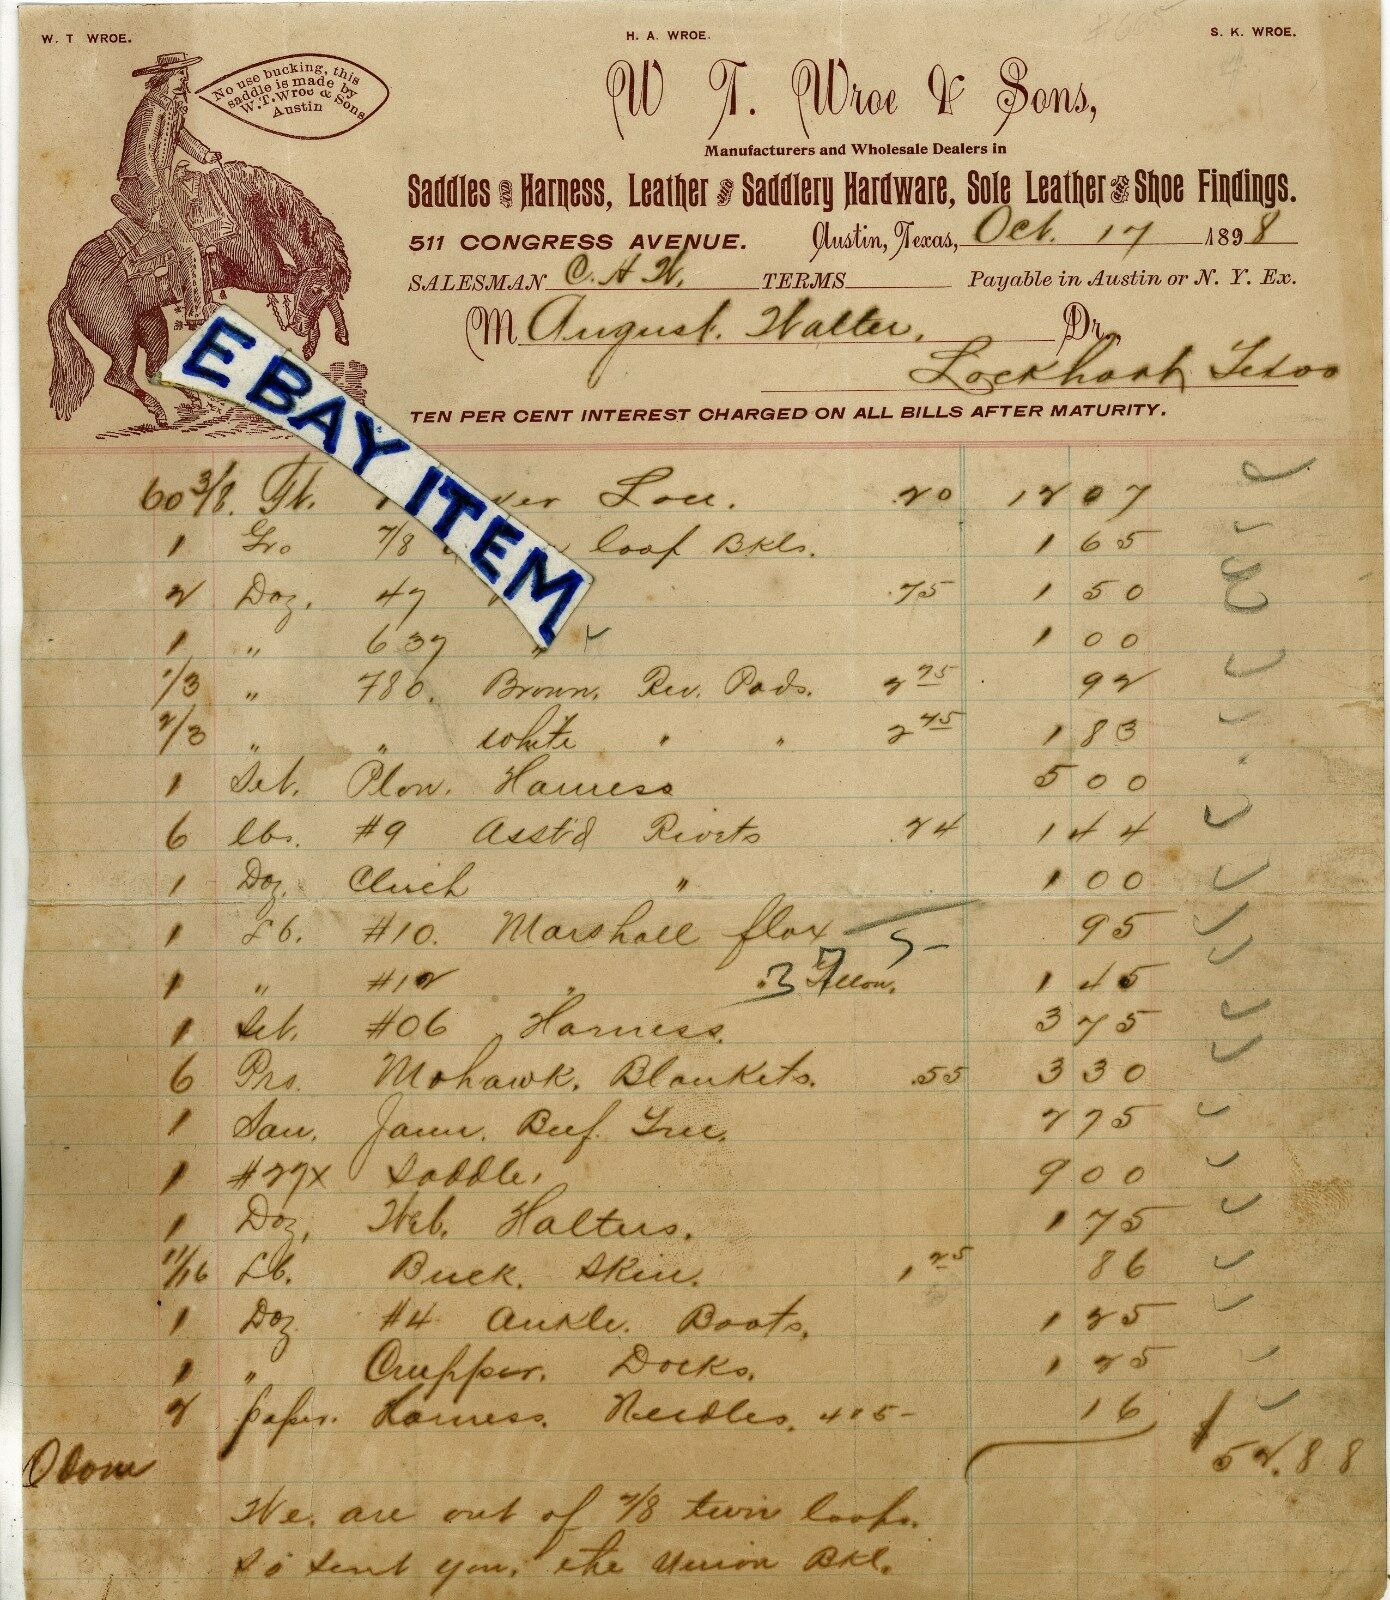 W. T. WROE.
H. A. WROE.
S. K. WROE.
No use bucking, this
saddle is made by
W. T. Wroe & Sons
Austin
W. T. Wroe & Sons,
Manufacturers and Wholesale Dealers in
Saddles Harness, Leather Saddlery Hardware, Sole Leather Shoe Findings.
511 CONGRESS AVENUE. Austin, Texas, Oct. 17 1898
SALESMAN C. H. W. TERMS Payable in Austin or N. Y. Ex.
M August. Walter, Dr.,
Lockhart Texas
TEN PER CENT INTEREST CHARGED ON ALL BILLS AFTER MATURITY.
EBAY ITEM
60 3/8. ft. .20 12 07
1 Gro 7/8 loop Bkls. 1 65
2 Doz. 47 .75 1 50
1 " 637 " 1 00
1/3 " 780. Brown. Riv. Pads. 2 75 92
2/3 " " white " " 2 45 1 83
1 Set. Plow. Harness 5 00
6 lbs. #9 Asst'd Rivets 24 1 44
1 Doz. Clinch " 1 00
1 Lb. #10. Marshall flax 95
1 " #12 " 1 45
1 Set. #06 Harness. 3 75
6 Prs. Mohawk. Blankets. .55 3 30
1 2 75
1 #27x Saddle. 9 00
1 Doz. Web. Halters. 1 75
11/16 Lb. Buck. Skin. 1 25 86
1 Doz #4 Ankle. Boots. 1 25
1 " Crupper. Docks. 1 25
2 paper. Harness. Needles. 4 & 5- 16
$ 52.88
Odom
We. are out of 7/8 twin loops.
so sent you. the Union Bkl.